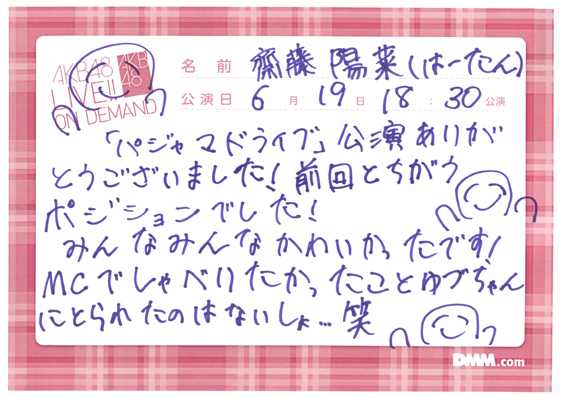 AKB48
LIVE!!
ON DEMAND
AKB
48
名前 齋藤陽菜(はーたん)
公演日 6月19日 18:30公演
「パジャマドライブ」公演ありが
とうございました!前回とちがう
ポジションでした!
みんなみんなかわいかったです!
MCでしゃべりたかったことゆづちゃん
にとられたのはないしょ…笑
DMM.com